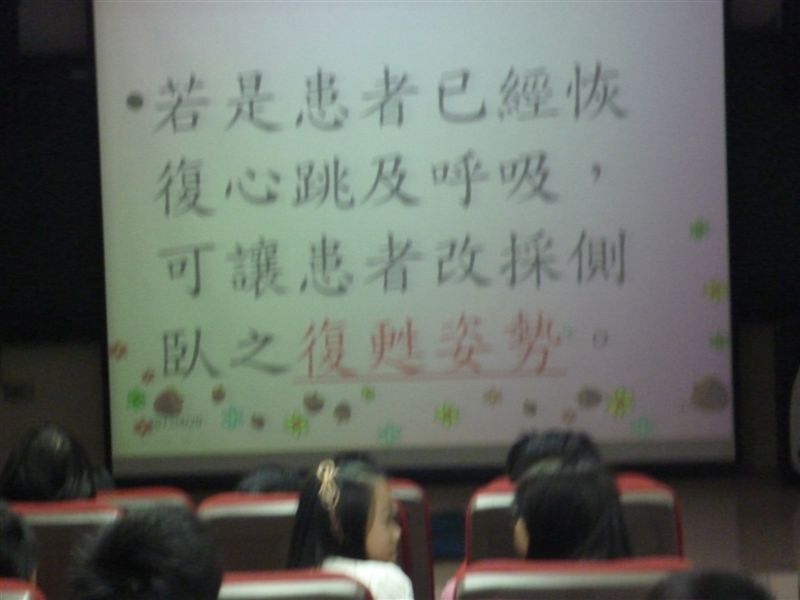 •若是患者已經恢
復心跳及呼吸，
可讓患者改採側
臥之復甦姿勢。